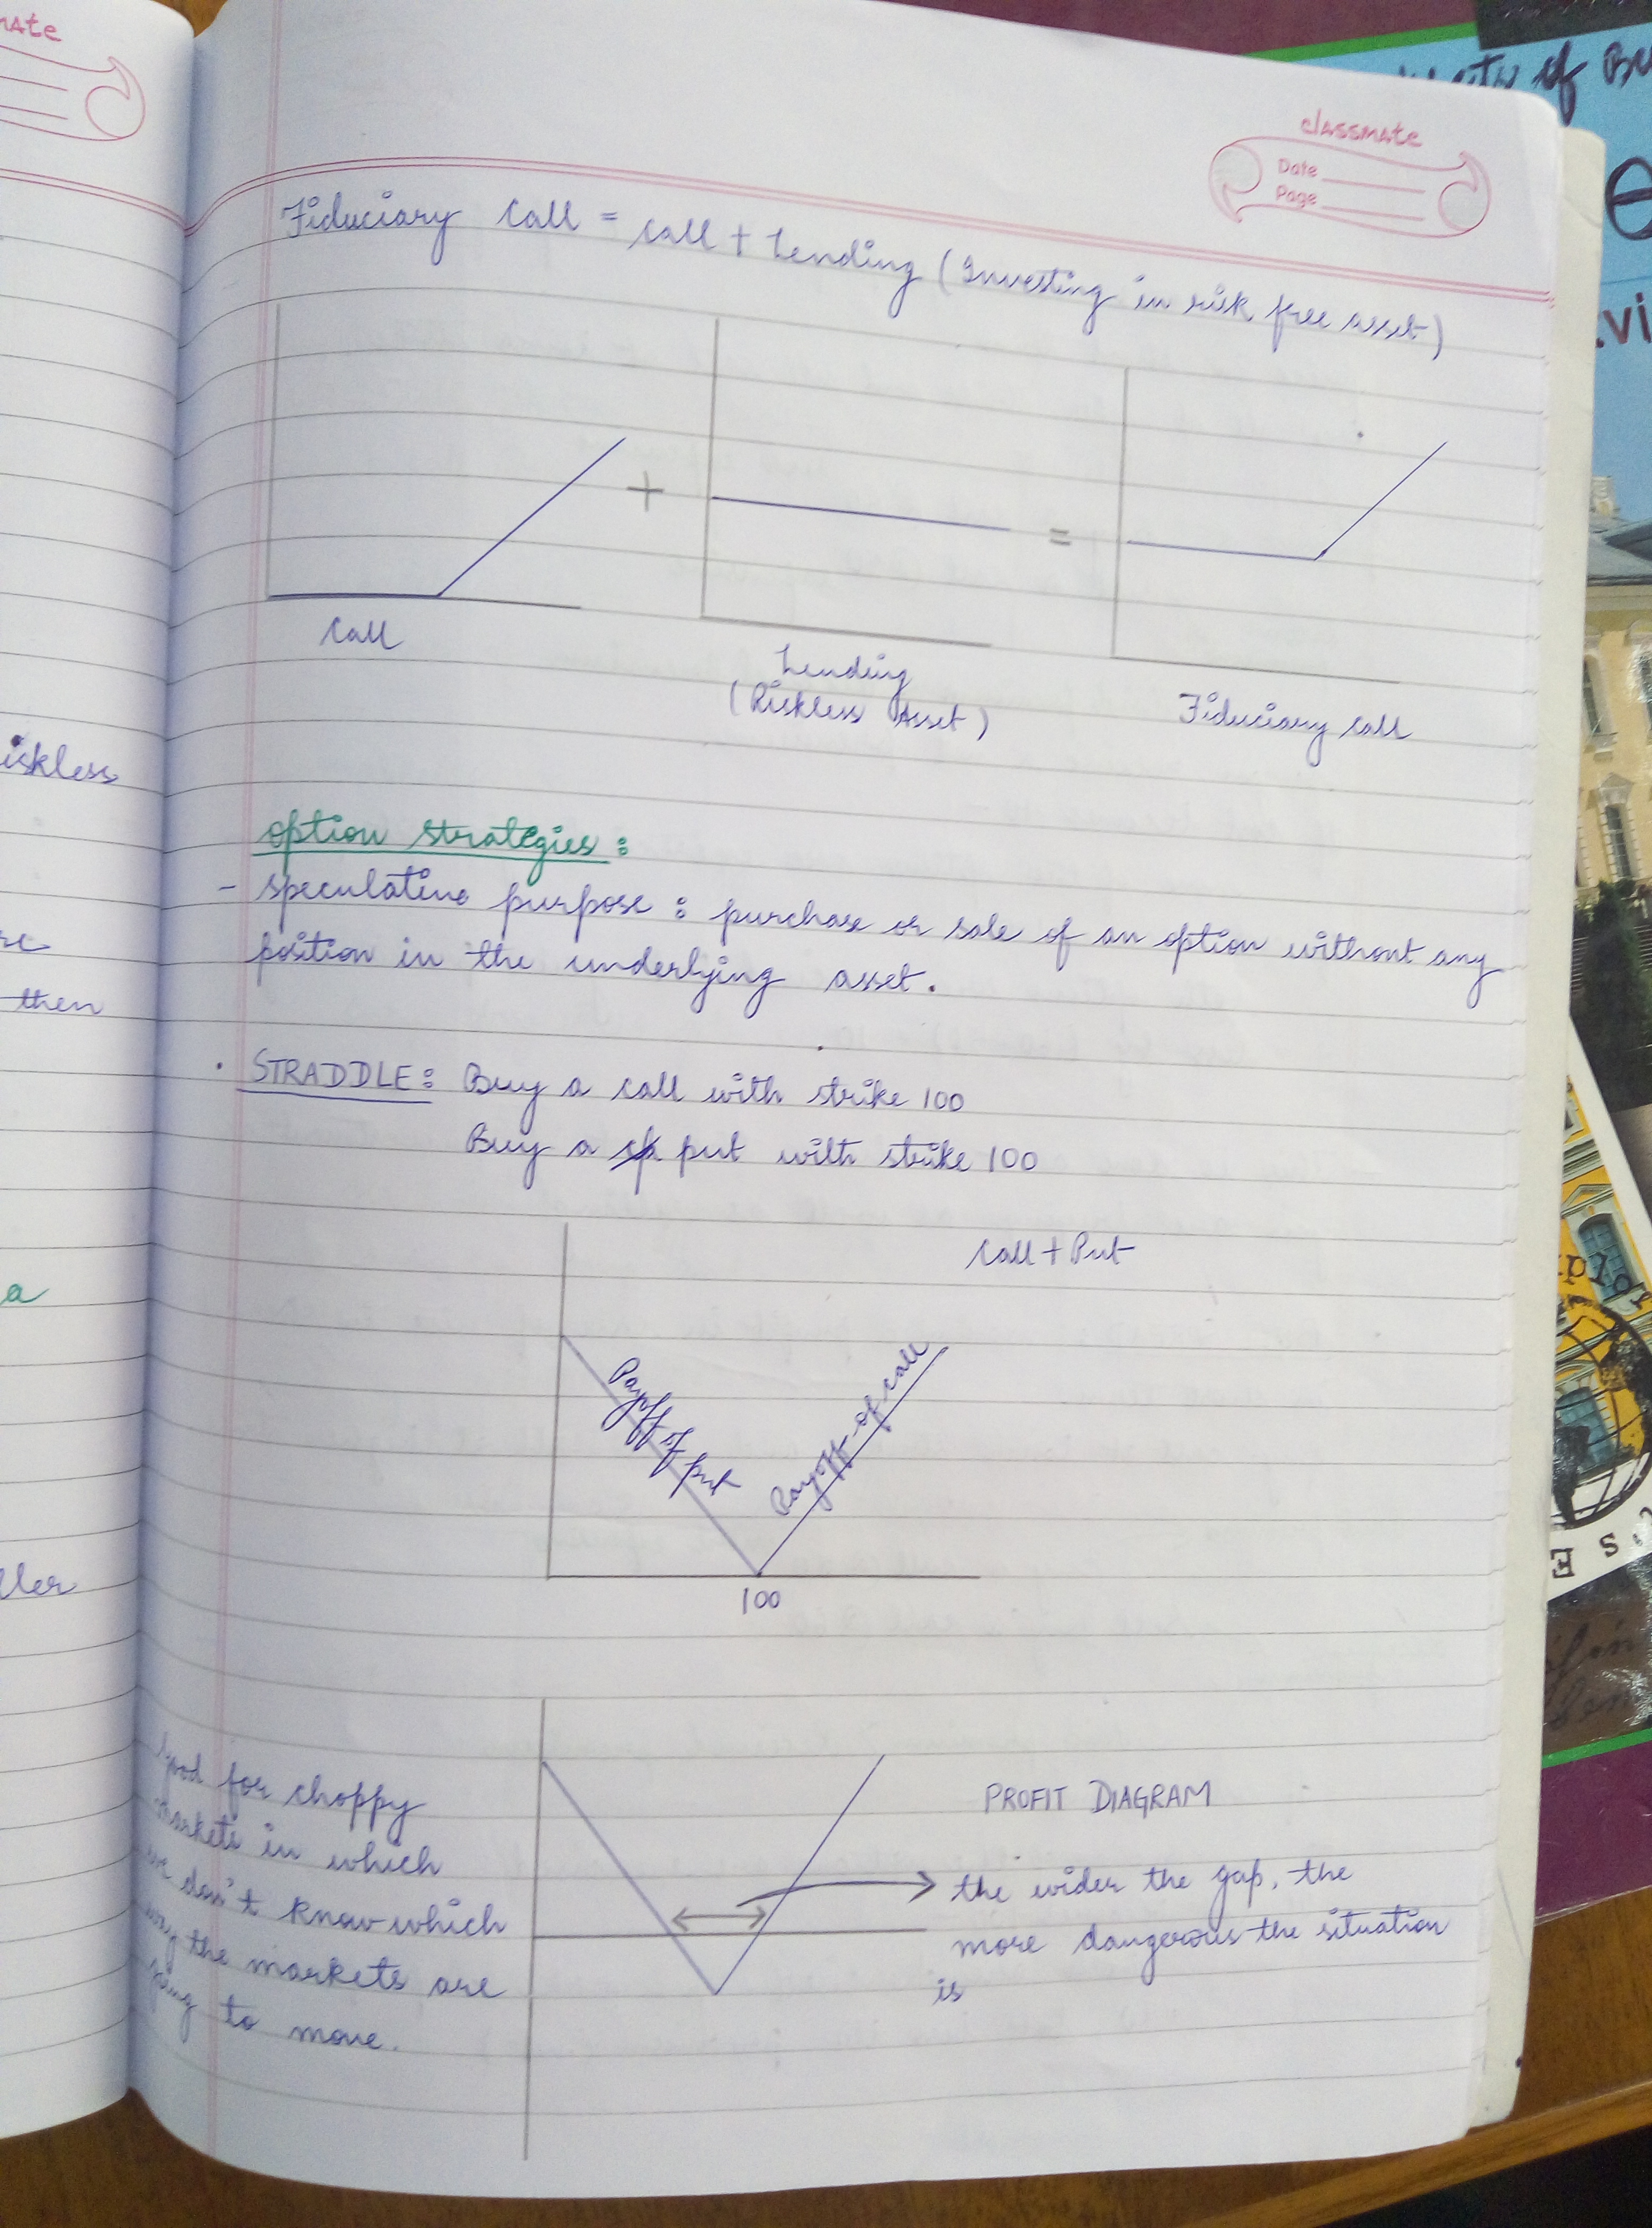 classmate
Date
Page
Fiduciary Call = Call + Lending (Investing in risk free asset)
+
=
Call
Lending
(Riskless Asset)
Fiduciary Call
iskless
option strategies:
- speculative purpose: purchase or sale of an option without any
position in the underlying asset.
then
. STRADDLE: Buy a call with strike 100
Buy a put with strike 100
Call + Put
a
Payoff of put
Payoff of call
100
ller
PROFIT DIAGRAM
good for choppy
markets in which
we don't know which
way the markets are
going to move.
the wider the gap, the
more dangerous the situation
is